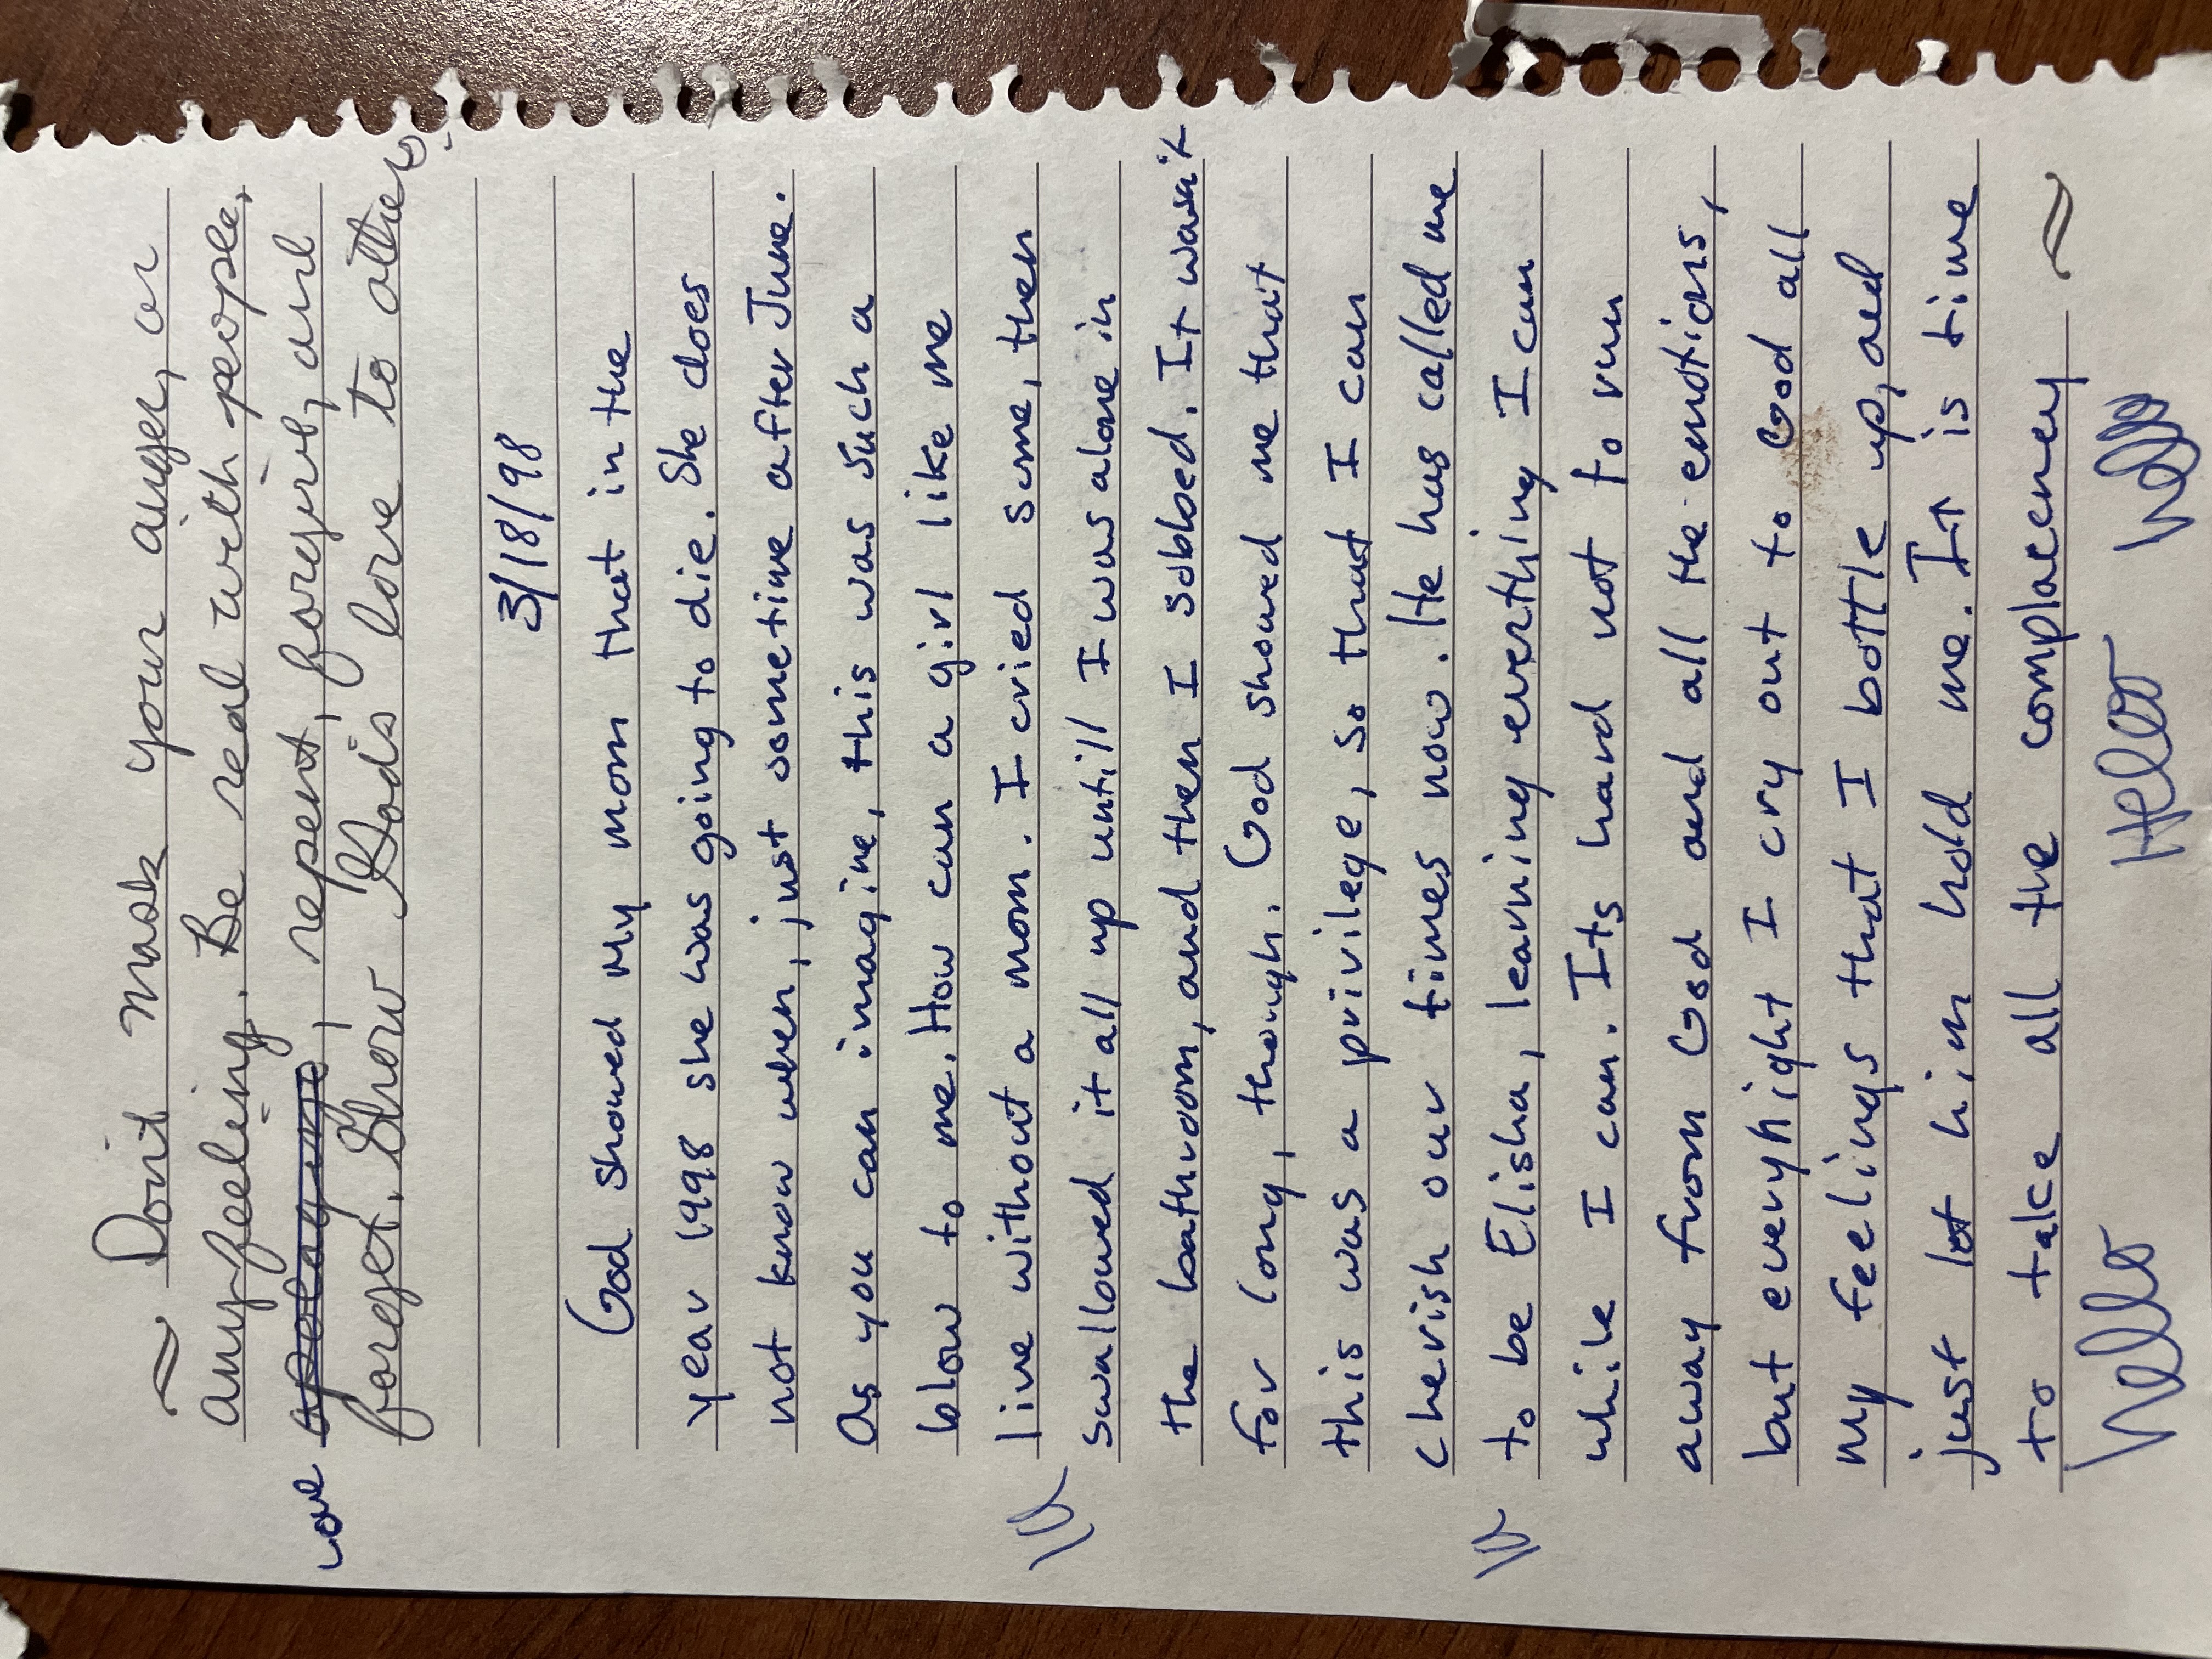 ~ Don't mask your anger, or
any feeling. Be real with people,
love apologize, repent, forgive, and
forget. Show God's love to others.
3/18/98
God showed my mom that in the
year 1998 she was going to die. She does
not know when, just sometime after June.
As you can imagine, this was such a
blow to me. How can a girl like me
live without a mom. I cried some, then
swallowed it all up untill I was alone in
the bathroom, and then I sobbed. It wasn't
for long, though. God showed me that
this was a privilege, so that I can
cherish our times now. He has called me
to be Elisha, learning everthing I can
while I can. Its hard not to run
away from God and all the emotions,
but everynight I cry out to God all
my feelings that I bottle up, and
just let him hold me. It is time
to take all the complacency ~
hello Hello hello